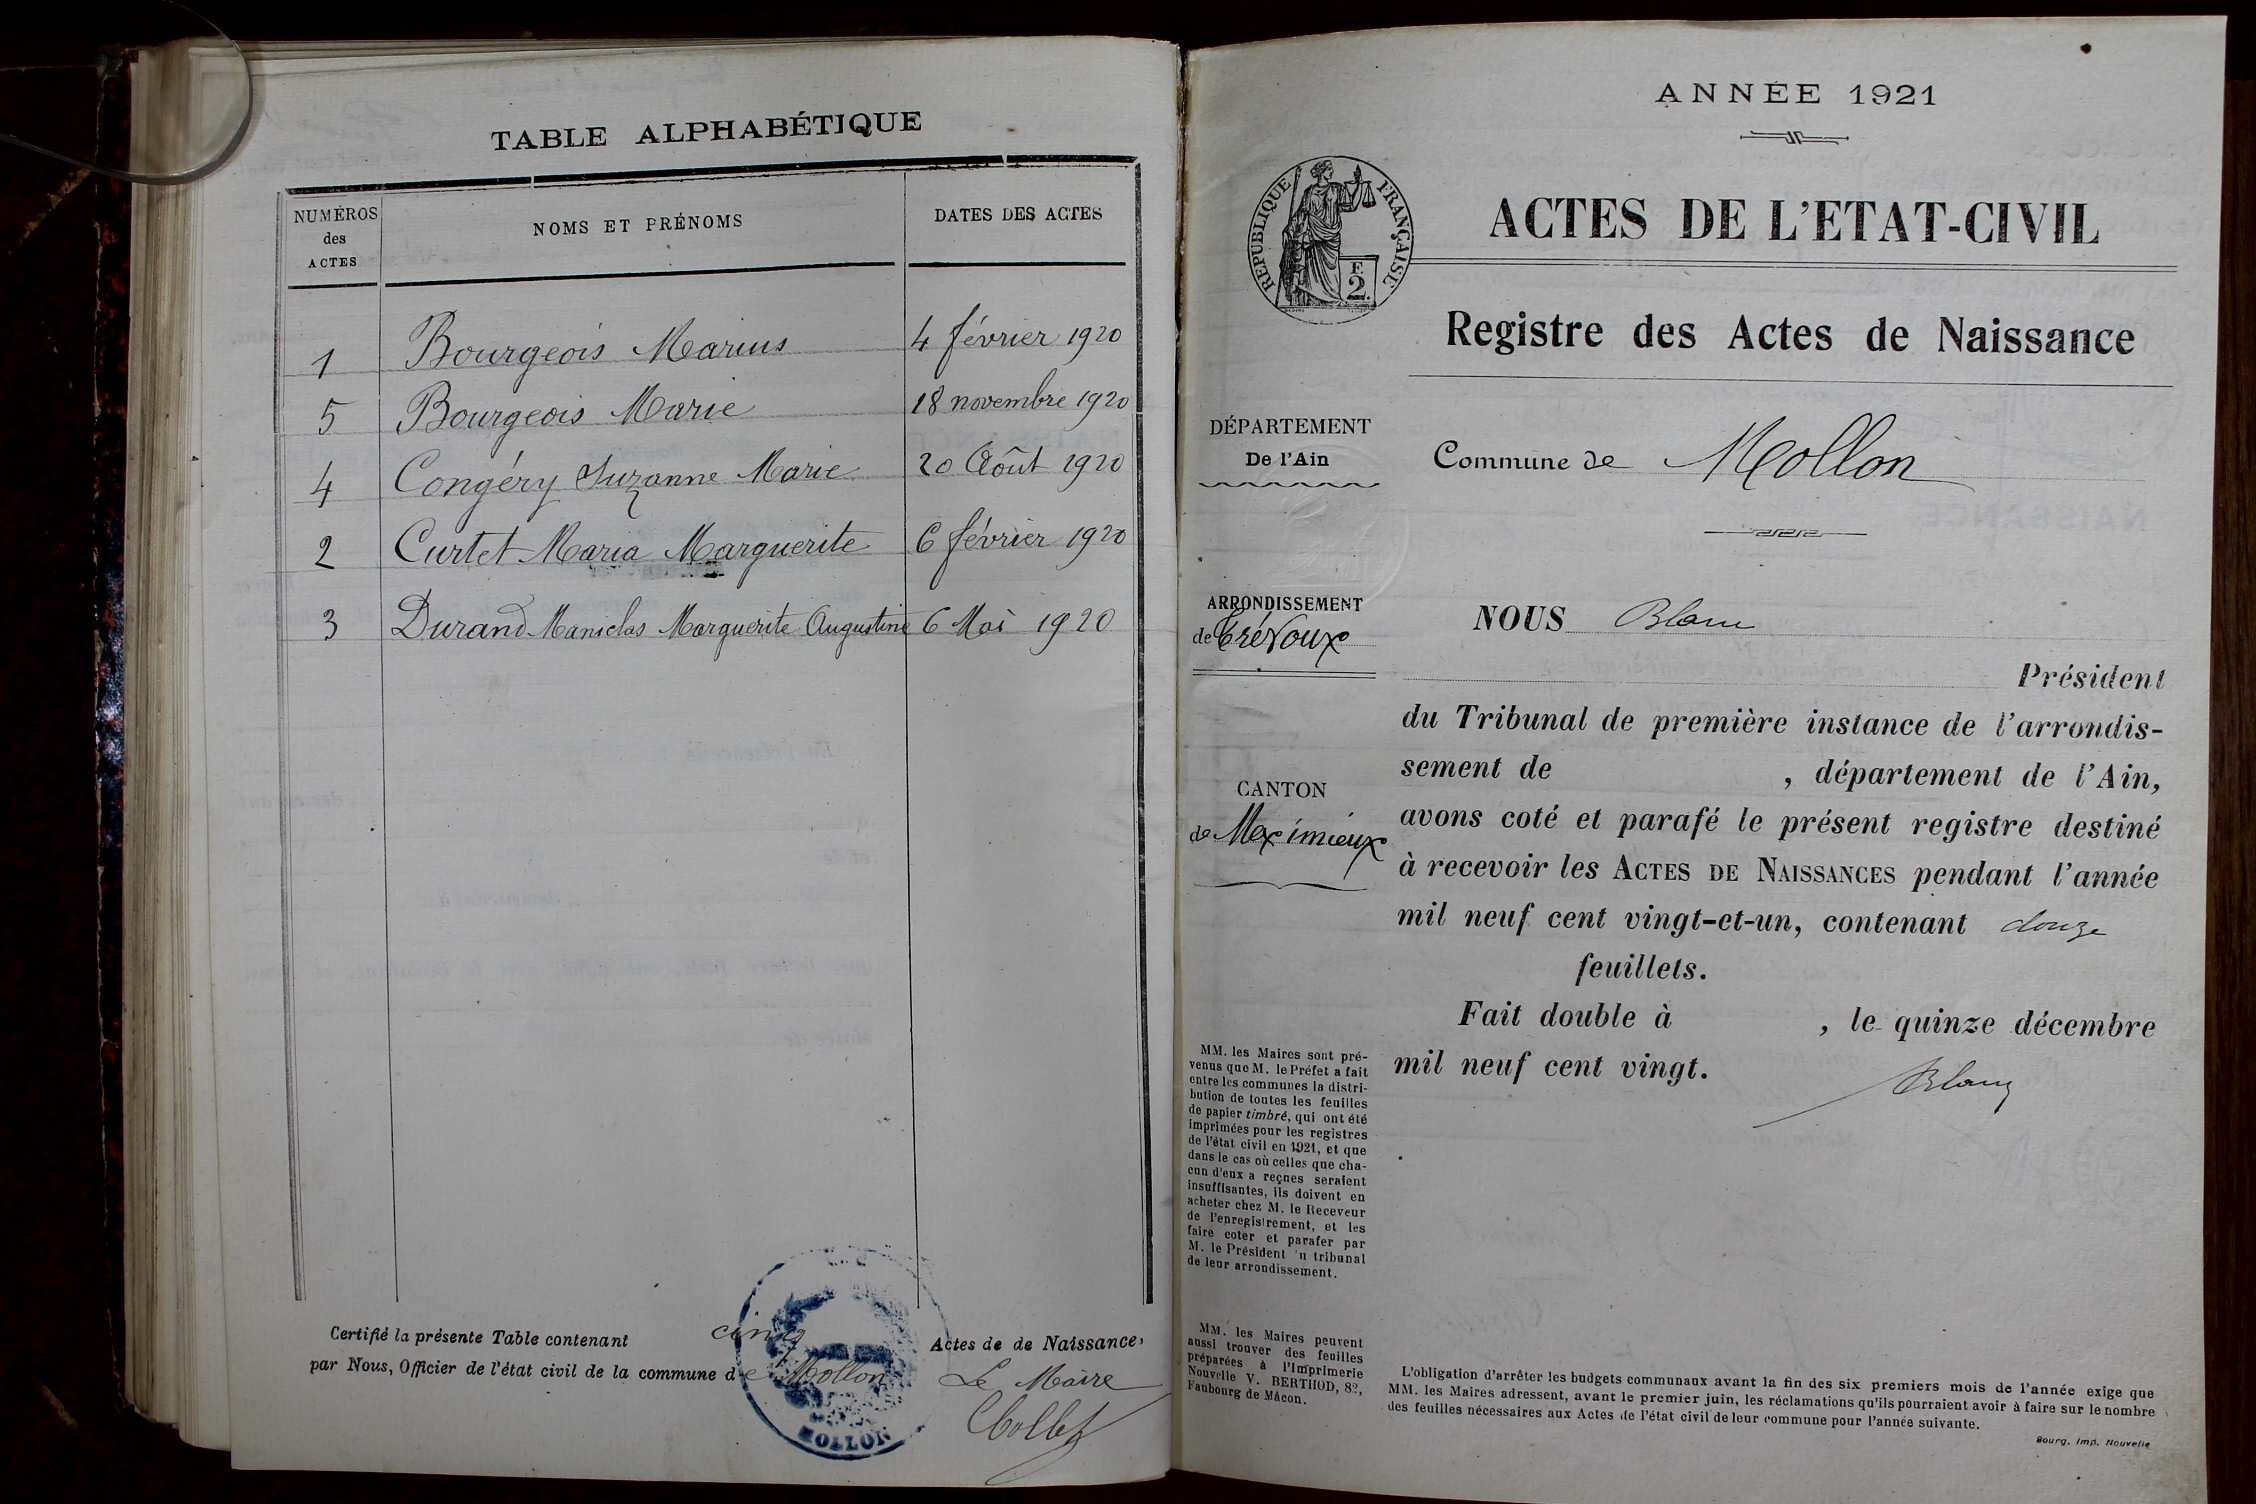 TABLE ALPHABÉTIQUE
NUMÉROS
des
ACTES
NOMS ET PRÉNOMS
DATES DES ACTES
1 Bourgeois Marius 4 février 1920
5 Bourgeois Marie 18 novembre 1920
4 Congéry Suzanne Marie 20 Août 1920
2 Curtet Maria Marguerite 6 février 1920
3 Durand Maniclas Marguerite Augustine 6 Mai 1920
Certifié la présente Table contenant cinq Actes de de Naissance,
par Nous, Officier de l'état civil de la commune de Mollon
Le Maire
MOLLON
ANNÉE 1921
RÉPUBLIQUE FRANÇAISE
F.
2.
ACTES DE L'ETAT-CIVIL
Registre des Actes de Naissance
DÉPARTEMENT
De l'Ain
Commune de Mollon
ARRONDISSEMENT
de Trévoux
CANTON
de Meximieux
NOUS Blanc
Président
du Tribunal de première instance de l'arrondis-
sement de , département de l'Ain,
avons coté et parafé le présent registre destiné
à recevoir les ACTES DE NAISSANCES pendant l'année
mil neuf cent vingt-et-un, contenant douze
feuillets.
Fait double à , le quinze décembre
mil neuf cent vingt.
Blanc
MM. les Maires sont pré-
venus que M. le Préfet a fait
entre les communes la distri-
bution de toutes les feuilles
de papier timbré, qui ont été
imprimées pour les registres
de l'état civil en 1921, et que
dans le cas où celles que cha-
cun d'eux a reçnes seraient
insuffisantes, ils doivent en
acheter chez M. le Receveur
de l'enregistrement, et les
faire coter et parafer par
M. le Président 'u tribunal
de leur arrondissement.
MM. les Maires peuvent
aussi trouver des feuilles
préparées à l'Imprimerie
Nouvelle V. BERTHOD, 82,
Faubourg de Mâcon.
L'obligation d'arrêter les budgets communaux avant la fin des six premiers mois de l'année exige que
MM. les Maires adressent, avant le premier juin, les réclamations qu'ils pourraient avoir à faire sur le nombre
des feuilles nécessaires aux Actes de l'état civil de leur commune pour l'année suivante.
Bourg, Imp. Nouvelle